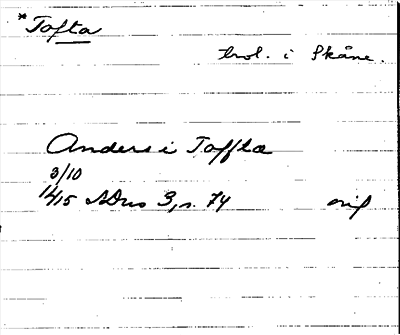 *Tofta
trol. i Skåne.
Anders i Toffta
3/10
1415 SDns 3, s. 74
orig